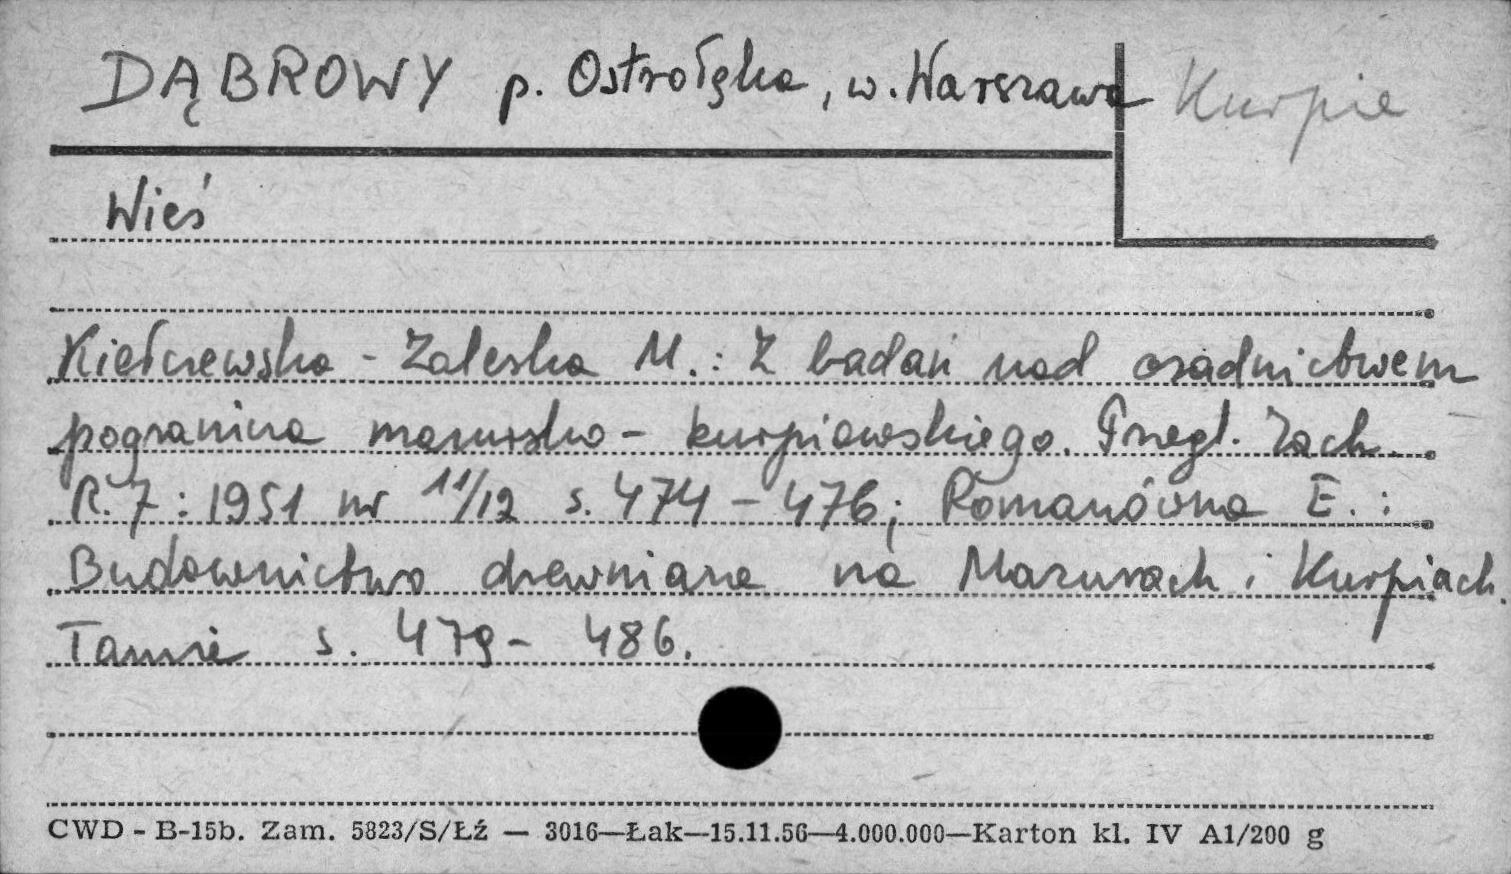 DĄBROWY p. Ostrołęka, w. Warszawa Kurpie
Wieś
Kiełczewska - Zaleska M.: Z badań nad osadnictwem
pogranicza mazursko - kurpiowskiego. Przegl. Zach.
R. 7 : 1951 nr 11/12 s. 474 - 476; Romanówna E. :
Budownictwo drewniane na Mazurach i Kurpiach.
Tamże s. 479 - 486.
CWD - B-15b. Zam. 5823/S/Łź — 3016—Łak—15.11.56—4.000.000—Karton kl. IV A1/200 g